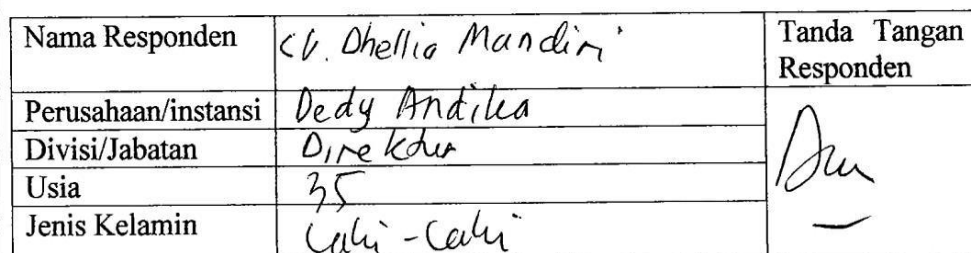 Nama Responden CV. Dhellia Mandiri Tanda Tangan
Responden
Perusahaan/instansi Dedy Andika
Divisi/Jabatan Direktur
Usia 35
Jenis Kelamin Laki-Laki